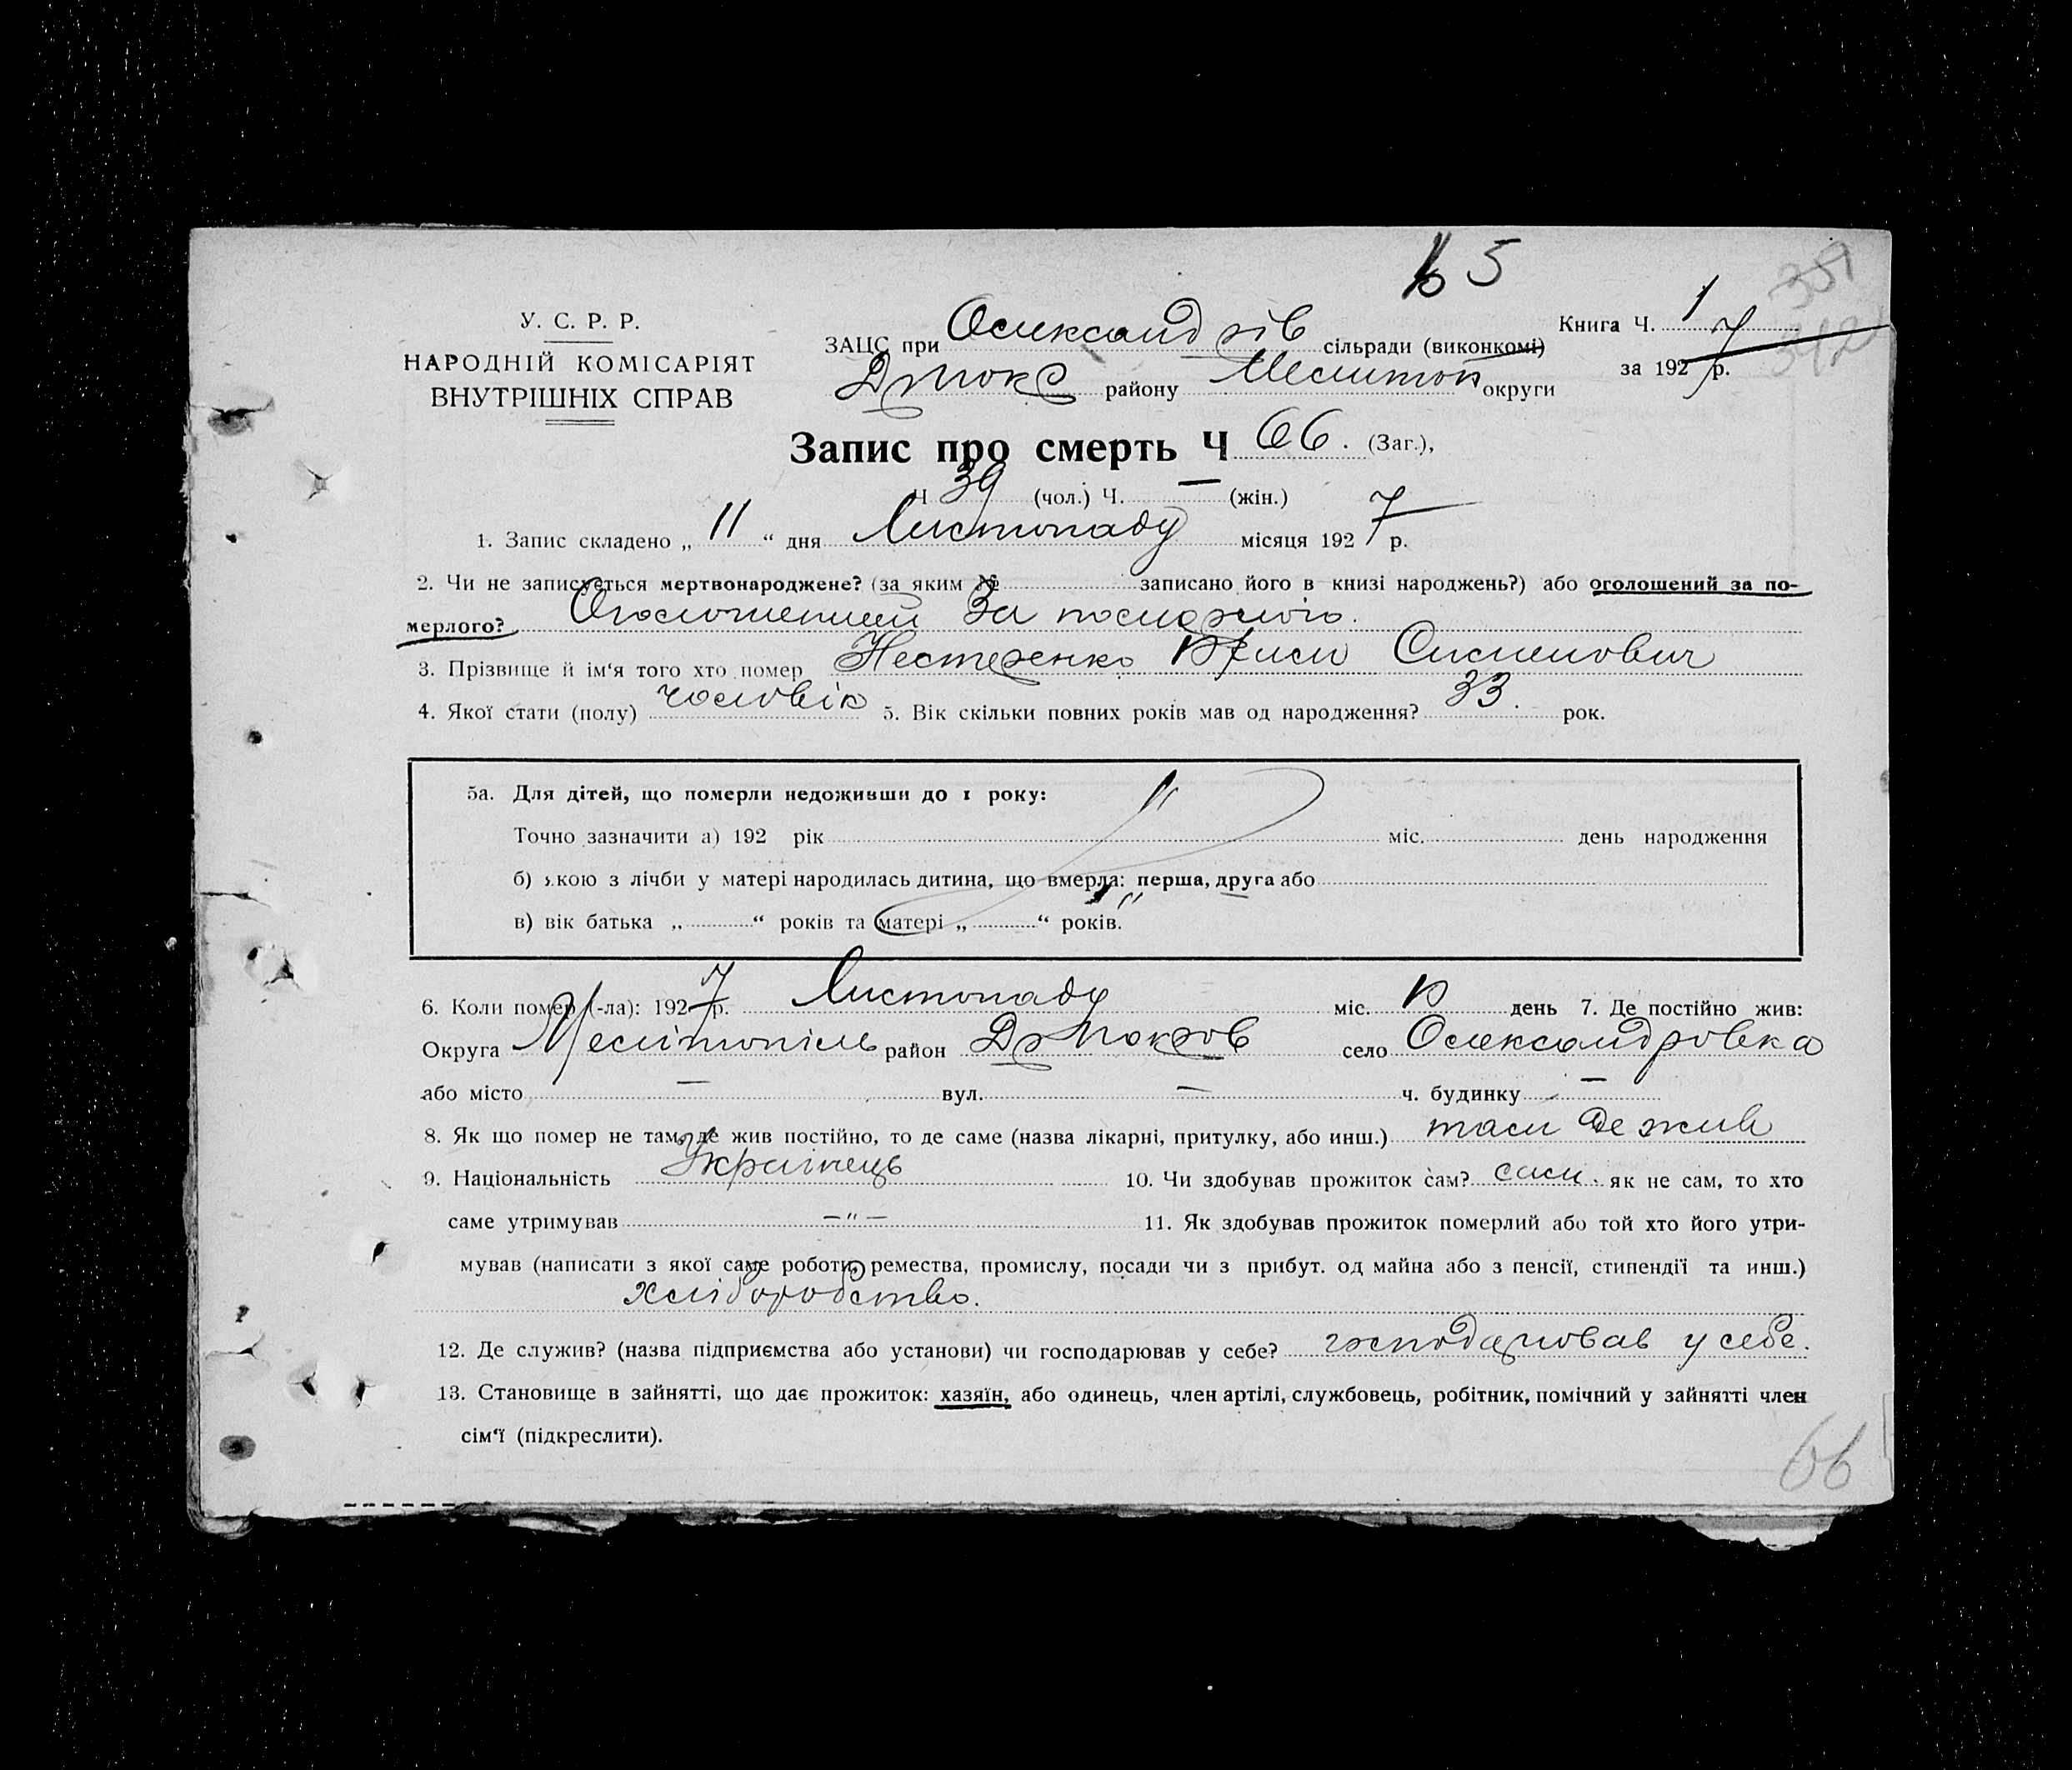 5
351
У. С. Р. Р.
НАРОДНІЙ КОМІСАРІЯТ
ВНУТРІШНІХ СПРАВ
ЗАЦС при Олександрів сільради (виконкомі)
Книга Ч. 1
району Мелітоп округи
за 1927 р.
Запис про смерть Ч 66. (Заг.),
Ч 39 (чол.) Ч. — (жін.)
1. Запис складено „ 11 “ дня Листопаду місяця 1927 р.
2. Чи не записується мертвонароджене? (за яким № записано його в книзі народжень?) або оголошений за по-
мерлого? Оголошений За помермого.
3. Прізвище й ім‘я того хто помер Нестеренко
4. Якої стати (полу) чоловік 5. Вік скільки повних років мав од народження? 33. рок.
5а. Для дітей, що померли недоживши до 1 року:
Точно зазначити а) 192 рік міс. день народження
б) якою з лічби у матері народилась дитина, що вмерла: перша, друга або
в) вік батька „ “ років та матері „ “ років.
6. Коли помер (-ла): 1927 р. Листопаду міс. день 7. Де постійно жив:
Округа Мелітопіль район село Олександровка
або місто — вул. — ч. будинку —
8. Як що помер не там, де жив постійно, то де саме (назва лікарні, притулку, або инш.) там де жив
9. Національність Українець 10. Чи здобував прожиток сам? сам. як не сам, то хто
саме утримував —„— 11. Як здобував прожиток померлий або той хто його утри-
мував (написати з якої саме роботи, ремества, промислу, посади чи з прибут. од майна або з пенсії, стипендії та инш.)
хліборобство.
12. Де служив? (назва підприємства або установи) чи господарював у себе? господарював у себе.
13. Становище в зайнятті, що дає прожиток: хазяїн, або одинець, член артілі, службовець, робітник, помічний у зайнятті член
сім‘ї (підкреслити).
66